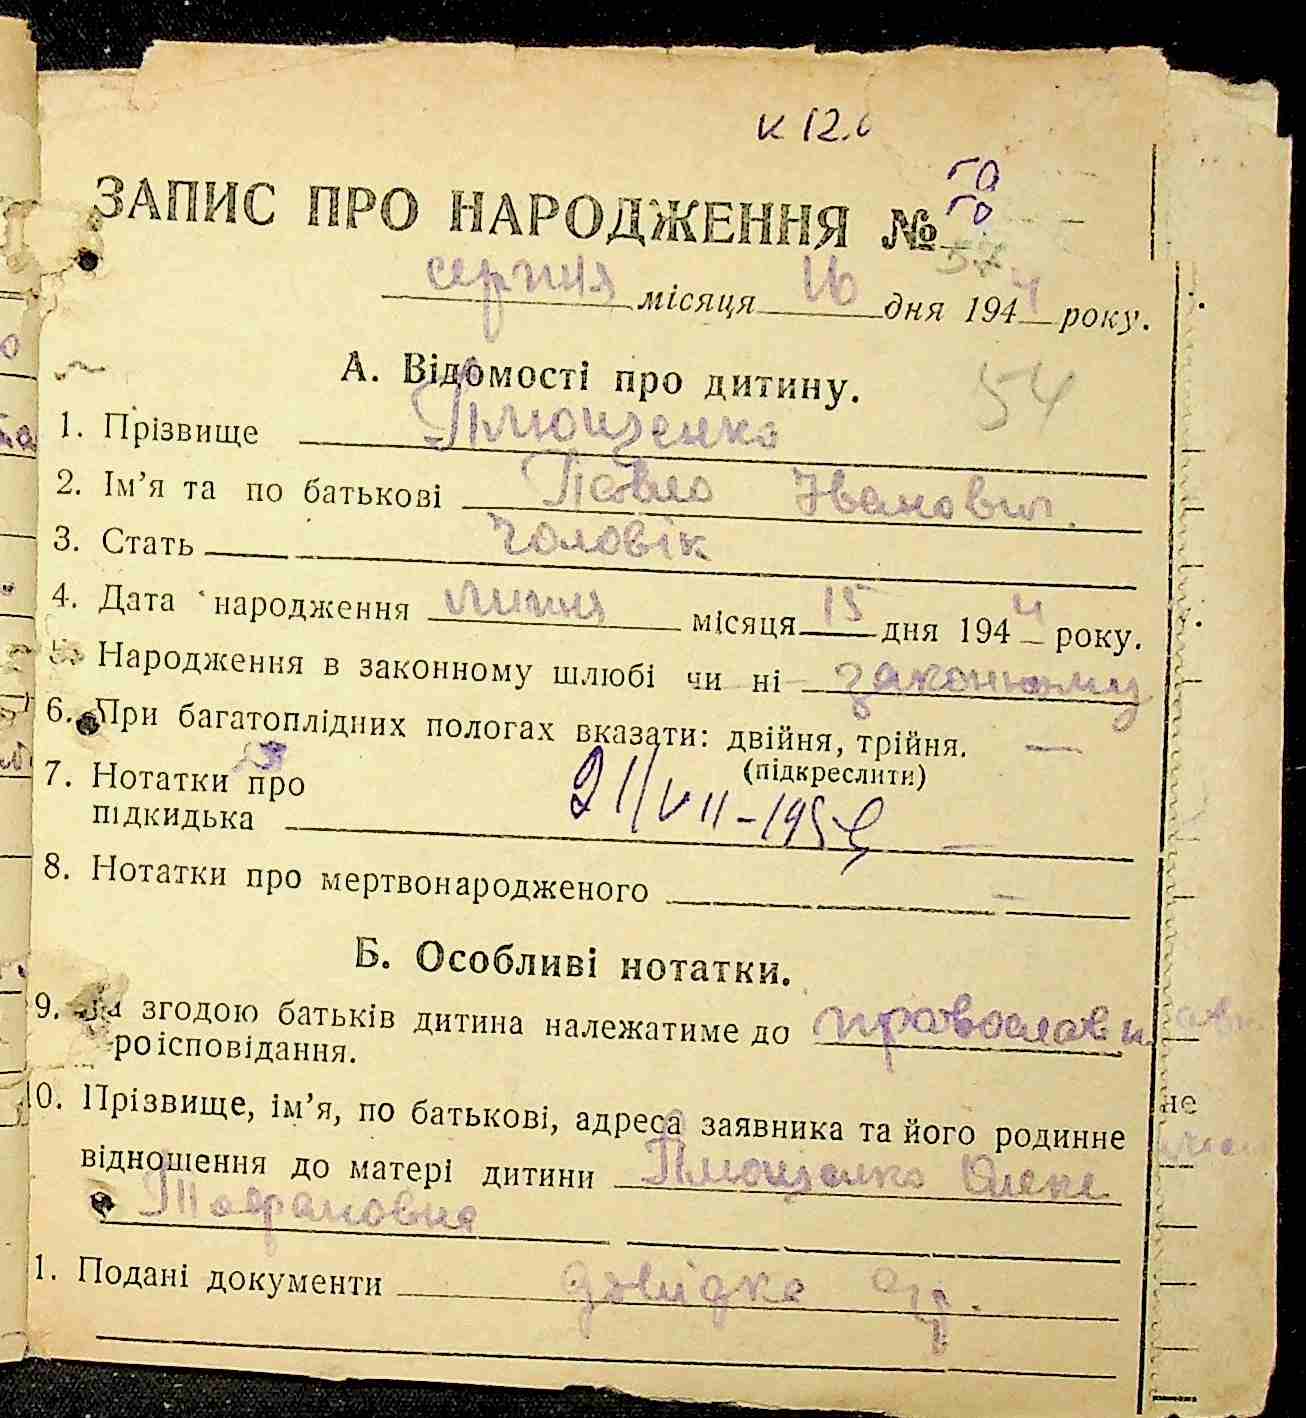 к 12.
ЗАПИС ПРО НАРОДЖЕННЯ №
57
серпня місяця 16 дня 1944 року.
А. Відомості про дитину.
54
1. Прізвище Плющенко
2. Ім’я та по батькові Павло Іванович
3. Стать Чоловік
4. Дата народження липня місяця 15 дня 1944 року.
5. Народження в законному шлюбі чи ні законному
6. При багатоплідних пологах вказати: двійня, трійня. —
(підкреслити)
7. Нотатки про
підкидька 21/VII-195 —
8. Нотатки про мертвонародженого —
Б. Особливі нотатки.
9. За згодою батьків дитина належатиме до православн
роісповідання.
10. Прізвище, ім’я, по батькові, адреса заявника та його родинне
відношення до матері дитини Плющенко
1. Подані документи довідка